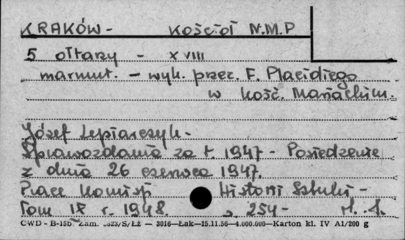 KRAKÓW - Kościół N.M.P
5 ołtarzy - XVIII
marmur. - wyk. przez F. Placidiego
w Kość. Mariackim.
Józef Lepiarczyk -
Sprawozdania za r. 1947 - Posiedzenie
z dnia 26 czerwca 1947.
Prace Komisji Historii Sztuki -
Tom IX r. 1948. s. 254 -
CWD - B-15b Zam. /S/Łż — 3016—Łak—15.11.56—4.000.000—Karton kl. IV A1/200 g